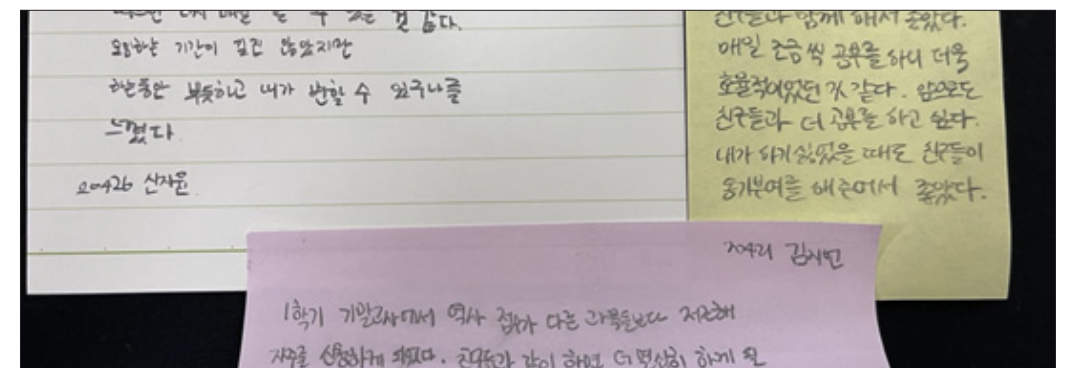 수 있는 것 같다.
요하는 기간이 길진 않았지만
하는동안 뿌듯하고 내가 변할 수 있구나를
느꼈다.
20426 신지윤
친구들과 함께 해서 좋았다.
매일 조금씩 공부를 하니 더욱
효율적이었던 것 같다. 앞으로도
친구들과 더 공부를 하고 싶다.
내가 하기 싫었을 때도 친구들이
동기부여를 해주어서 좋았다.
20421 김지연
1학기 기말고사에서 역사 점수가 다른 과목들보다 저조해
자주를 신청하게 되었다. 친구들과 같이 하면 더 열심히 하게 될